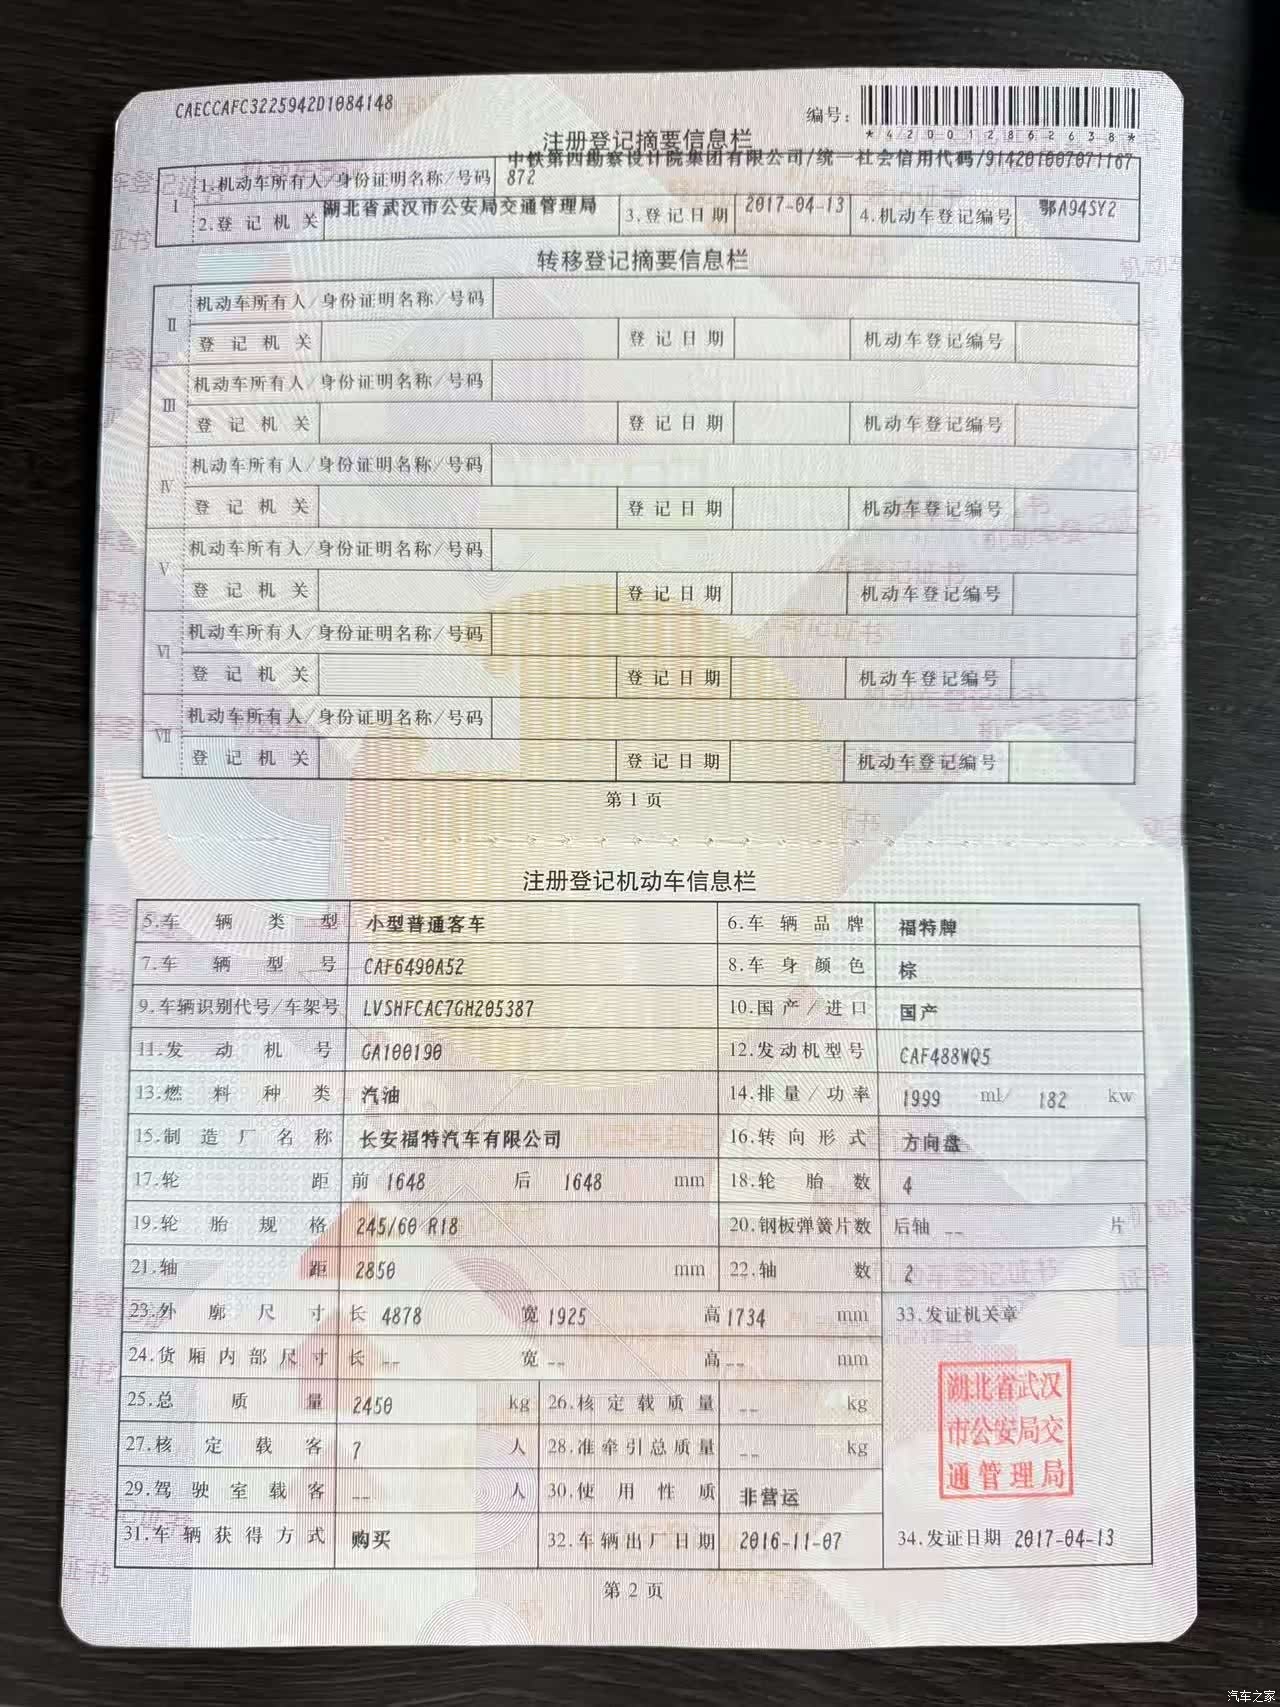 CAECCAFC3225942D1084148
编号:
*420012862638*
注册登记摘要信息栏
I 1.机动车所有人/身份证明名称/号码 中铁第四勘察设计院集团有限公司/统一社会信用代码/914201007071167872
2.登记机关 湖北省武汉市公安局交通管理局 3.登记日期 2017-04-13 4.机动车登记编号 鄂A94SY2
转移登记摘要信息栏
II 机动车所有人/身份证明名称/号码
登记机关 登记日期 机动车登记编号
III 机动车所有人/身份证明名称/号码
登记机关 登记日期 机动车登记编号
IV 机动车所有人/身份证明名称/号码
登记机关 登记日期 机动车登记编号
V 机动车所有人/身份证明名称/号码
登记机关 登记日期 机动车登记编号
VI 机动车所有人/身份证明名称/号码
登记机关 登记日期 机动车登记编号
VII 机动车所有人/身份证明名称/号码
登记机关 登记日期 机动车登记编号
第 1 页
注册登记机动车信息栏
5.车辆类型 小型普通客车 6.车辆品牌 福特牌
7.车辆型号 CAF6490A52 8.车身颜色 棕
9.车辆识别代号/车架号 LVSHFCAC7GH205387 10.国产/进口 国产
11.发动机号 GA100190 12.发动机型号 CAF488WQ5
13.燃料种类 汽油 14.排量/功率 1999 ml/ 182 kw
15.制造厂名称 长安福特汽车有限公司 16.转向形式 方向盘
17.轮距 前 1648 后 1648 mm 18.轮胎数 4
19.轮胎规格 245/60 R18 20.钢板弹簧片数 后轴 -- 片
21.轴距 2850 mm 22.轴数 2
23.外廓尺寸 长 4878 宽 1925 高 1734 mm 33.发证机关章
24.货厢内部尺寸 长 -- 宽 -- 高 -- mm
25.总质量 2450 kg 26.核定载质量 -- kg
湖北省武汉
市公安局交
通管理局
27.核定载客 7 人 28.准牵引总质量 -- kg
29.驾驶室载客 -- 人 30.使用性质 非营运
31.车辆获得方式 购买 32.车辆出厂日期 2016-11-07 34.发证日期 2017-04-13
第 2 页
汽车之家